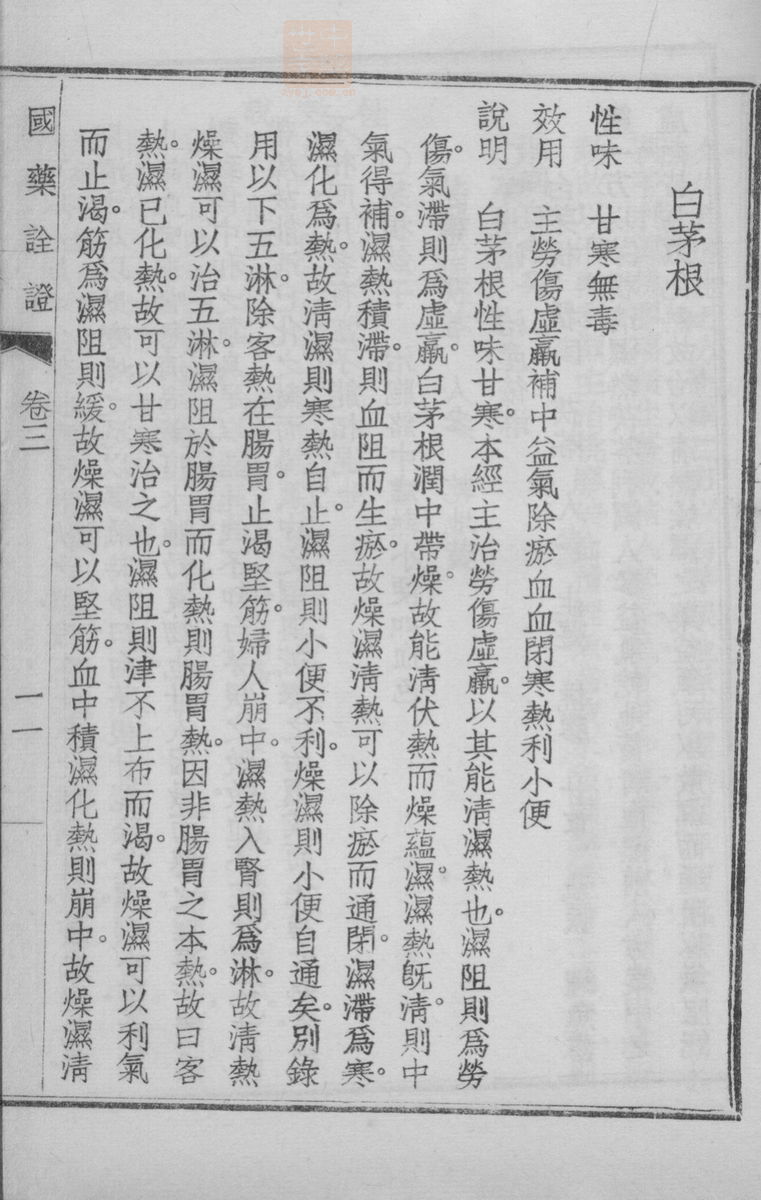 白茅根
性味　甘寒無毒
效用　主勞傷虛羸補中益氣除瘀血血閉寒熱利小便
說明　白茅根性味甘寒。本經主治勞傷虛羸。以其能淸濕熱也。濕阻則爲勞
傷。氣滯則爲虛羸。白茅根潤中帶燥。故能淸伏熱而燥蘊濕。濕熱旣淸。則中
氣得補。濕熱積滯。則血阻而生瘀。故燥濕淸熱可以除瘀而通閉。濕滯爲寒。
濕化爲熱。故淸濕則寒熱自止。濕阻則小便不利。燥濕則小便自通矣。別錄
用以下五淋。除客熱在腸胃。止渴堅筋。婦人崩中。濕熱入腎則爲淋。故淸熱
燥濕可以治五淋。濕阻於腸胃而化熱則腸胃熱。因非腸胃之本熱。故曰客
熱。濕已化熱。故可以甘寒治之也。濕阻則津不上布而渴。故燥濕可以利氣
而止渴。筋爲濕阻則緩。故燥濕可以堅筋。血中積濕化熱則崩中。故燥濕淸
國藥詮證　卷三　一一